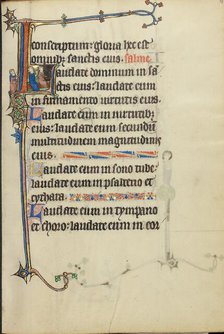 conscriptum: gloria hec est
omnibus sanctis eius. salmus
Laudate dominum in sa
ctis eius: laudate eum
in firmamento virtutis eius.
Laudate eum in virtutibus
eius: laudate eum secundum
multitudinem magnitudinis
eius.
Laudate eum in sono tube:
laudate eum in psalterio et
cythara.
Laudate eum in tympano
et choro: laudate eum in cor